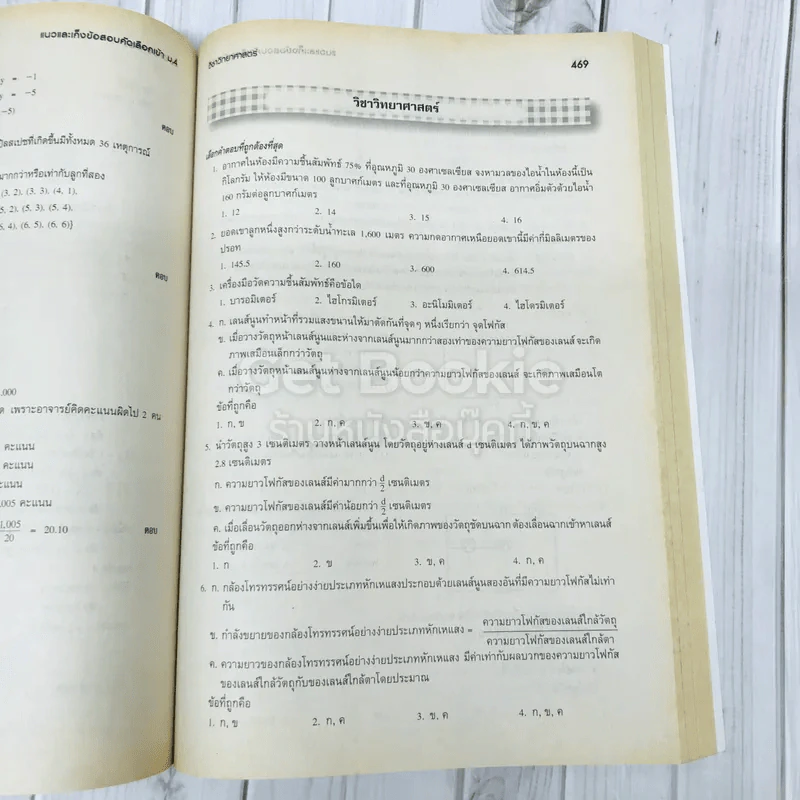 แนวและเก็งข้อสอบคัดเลือกเข้า ม.4
= −1
= −5
−5)
ตอบ
ปิลสเปซที่เกิดขึ้นมีทั้งหมด 36 เหตุการณ์
มากกว่าหรือเท่ากับลูกที่สอง
(3, 2), (3, 3), (4, 1),
5, 2), (5, 3), (5, 4),
6, 4), (6, 5), (6, 6)}
ตอบ
.000
ด เพราะอาจารย์คิดคะแนนผิดไป 2 คน
คะแนน
คะแนน
ะแนน
005 คะแนน
1,005
20
= 20.10
ตอบ
วิชาวิทยาศาสตร์
469
วิชาวิทยาศาสตร์
เลือกคำตอบที่ถูกต้องที่สุด
1. อากาศในห้องมีความชื้นสัมพัทธ์ 75% ที่อุณหภูมิ 30 องศาเซลเซียส จงหามวลของไอน้ำในห้องนี้เป็น
กิโลกรัม ให้ห้องมีขนาด 100 ลูกบาศก์เมตร และที่อุณหภูมิ 30 องศาเซลเซียส อากาศอิ่มตัวด้วยไอน้ำ
160 กรัมต่อลูกบาศก์เมตร
1. 12 2. 14 3. 15 4. 16
2. ยอดเขาลูกหนึ่งสูงกว่าระดับน้ำทะเล 1,600 เมตร ความกดอากาศเหนือยอดเขานี้มีค่ากี่มิลลิเมตรของ
ปรอท
1. 145.5 2. 160 3. 600 4. 614.5
3. เครื่องมือวัดความชื้นสัมพัทธ์คือข้อใด
1. บารอมิเตอร์ 2. ไฮโกรมิเตอร์ 3. อะนิโมมิเตอร์ 4. ไฮโดรมิเตอร์
4. ก. เลนส์นูนทำหน้าที่รวมแสงขนานให้มาตัดกันที่จุดๆ หนึ่งเรียกว่า จุดโฟกัส
ข. เมื่อวางวัตถุหน้าเลนส์นูนและห่างจากเลนส์นูนมากกว่าสองเท่าของความยาวโฟกัสของเลนส์ จะเกิด
ภาพเสมือนเล็กกว่าวัตถุ
ค. เมื่อวางวัตถุหน้าเลนส์นูนห่างจากเลนส์นูนน้อยกว่าความยาวโฟกัสของเลนส์ จะเกิดภาพเสมือนโต
กว่าวัตถุ
ข้อที่ถูกคือ
1. ก, ข 2. ก, ค 3. ข, ค 4. ก, ข, ค
Get Bookie
ร้านหนังสือบุ๊คกี้
5. นำวัตถุสูง 3 เซนติเมตร วางหน้าเลนส์นูน โดยวัตถุอยู่ห่างเลนส์ d เซนติเมตร ได้ภาพวัตถุบนฉากสูง
2.8 เซนติเมตร
ก. ความยาวโฟกัสของเลนส์มีค่ามากกว่า d/2 เซนติเมตร
ข. ความยาวโฟกัสของเลนส์มีค่าน้อยกว่า d/2 เซนติเมตร
ค. เมื่อเลื่อนวัตถุออกห่างจากเลนส์เพิ่มขึ้นเพื่อให้เกิดภาพของวัตถุชัดบนฉาก ต้องเลื่อนฉากเข้าหาเลนส์
ข้อที่ถูกคือ
1. ก 2. ข 3. ข, ค 4. ก, ค
6. ก. กล้องโทรทรรศน์อย่างง่ายประเภทหักเหแสงประกอบด้วยเลนส์นูนสองอันที่มีความยาวโฟกัสไม่เท่า
กัน
ข. กำลังขยายของกล้องโทรทรรศน์อย่างง่ายประเภทหักเหแสง = ความยาวโฟกัสของเลนส์ใกล้วัตถุ
ความยาวโฟกัสของเลนส์ใกล้ตา
ค. ความยาวของกล้องโทรทรรศน์อย่างง่ายประเภทหักเหแสง มีค่าเท่ากับผลบวกของความยาวโฟกัส
ของเลนส์ใกล้วัตถุกับของเลนส์ใกล้ตาโดยประมาณ
ข้อที่ถูกคือ
1. ก, ข 2. ก, ค 3. ข, ค 4. ก, ข, ค